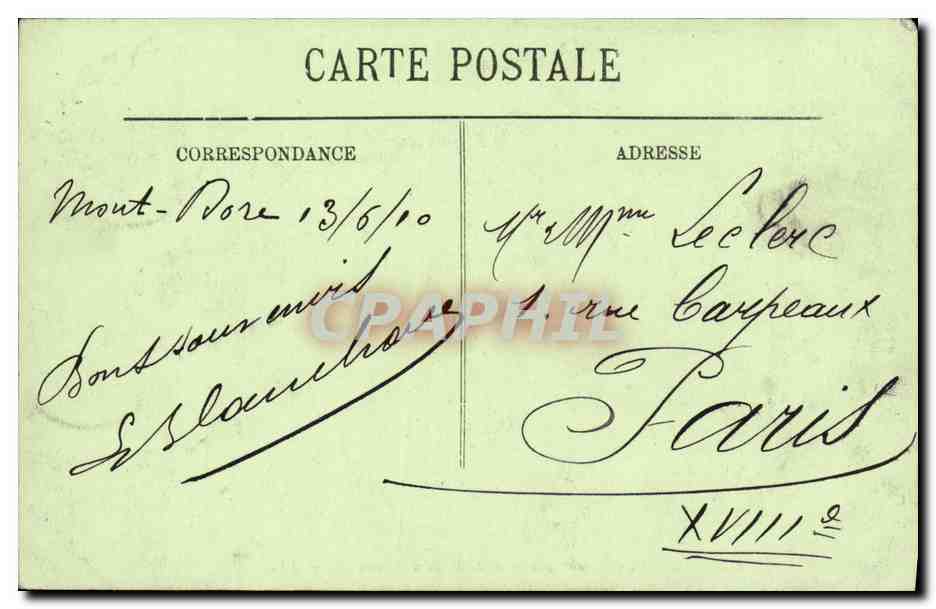 CARTE POSTALE
CORRESPONDANCE
Mont-Dore 13/6/10
Bons souvenirs
ADRESSE
Mr & Mme Leclerc
1. rue Carpeaux
Paris
XVIIIe
CPAPHIL